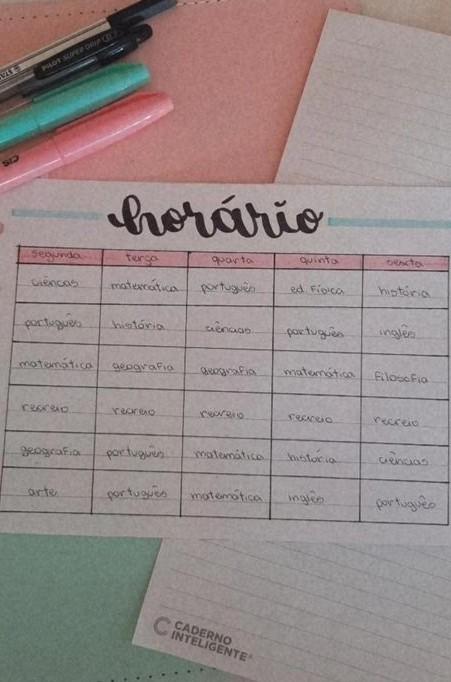 PILOT SUPER GRIP
CIS
horário
segunda terça quarta quinta sexta
ciências matemática português ed. Física história
português história ciências português inglês
matemática geografia geografia matemática Filosofia
recreio recreio recreio recreio recreio
geografia português matemática história ciências
arte português matemática inglês português
CADERNO
INTELIGENTE